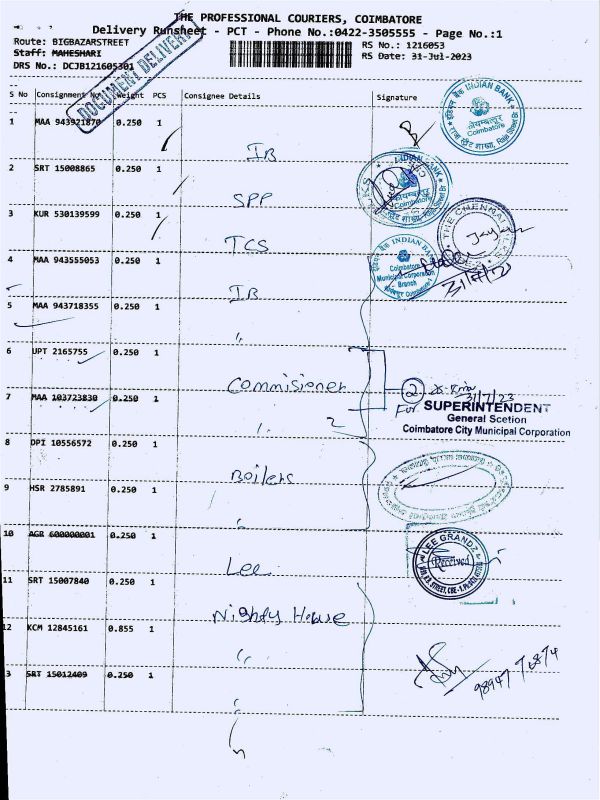 THE PROFESSIONAL COURIERS, COIMBATORE
Delivery Runsheet - PCT - Phone No.:0422-3505555 - Page No.:1
Route: BIGBAZARSTREET
RS No.: 1216053
Staff: MAHESHARI
RS Date: 31-Jul-2023
DRS No.: DCJB121605301
DOCUMENT DELIVERY
S No Consignment No Weight PCS Consignee Details Signature
1 MAA 943921870 0.250 1 IB
INDIAN BANK
Coimbatore
2 SRT 15008865 0.250 1 SPP
INDIAN BANK
Coimbatore
3 KUR 530139599 0.250 1 TCS
THE CHENNAI SILKS
4 MAA 943555053 0.250 1 IB
INDIAN BANK
Coimbatore
Municipal Corporation
Branch
31/7/23
5 MAA 943718355 0.250 1 "
6 UPT 2165755 0.250 1 Commisioner
7 MAA 103723830 0.250 1 "
2
31/7/23
For SUPERINTENDENT
General Scetion
Coimbatore City Municipal Corporation
8 DPI 10556572 0.250 1 Boilers
9 HSR 2785891 0.250 1 "
10 AGR 600000001 0.250 1 Lee
LEE GRANDZ
Received
11 SRT 15007840 0.250 1 Nighty House
12 KCM 12845161 0.855 1 "
13 SRT 15012409 0.250 1 "